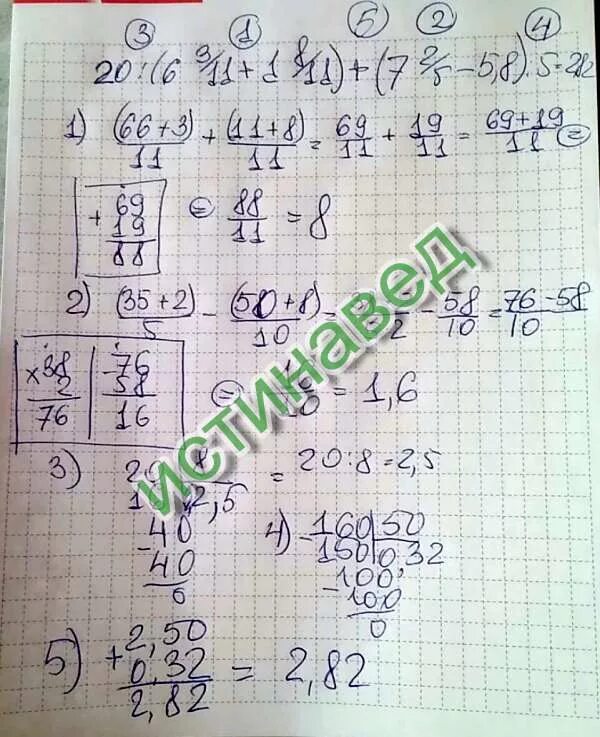 ③ ① ⑤ ② ④
20:(6 3/11+1 8/11)+(7 2/5-5,8):5=2,82
1) (66+3)/11 + (11+8)/11 = 69/11 + 19/11 = (69+19)/11 =
+ 69 19 88 = 88/11 = 8
2) (35+2)/5 - (50+8)/10 = - 58/10 = (76-58)/10
×38 2 76 -76 58 16 = = 1,6
3) 20 8 2,5 = 20:8=2,5
-40 40 0
4) -160 50 150 0,32 -100 100 0
5) +2,50 0,32 2,82 = 2,82
истинавед